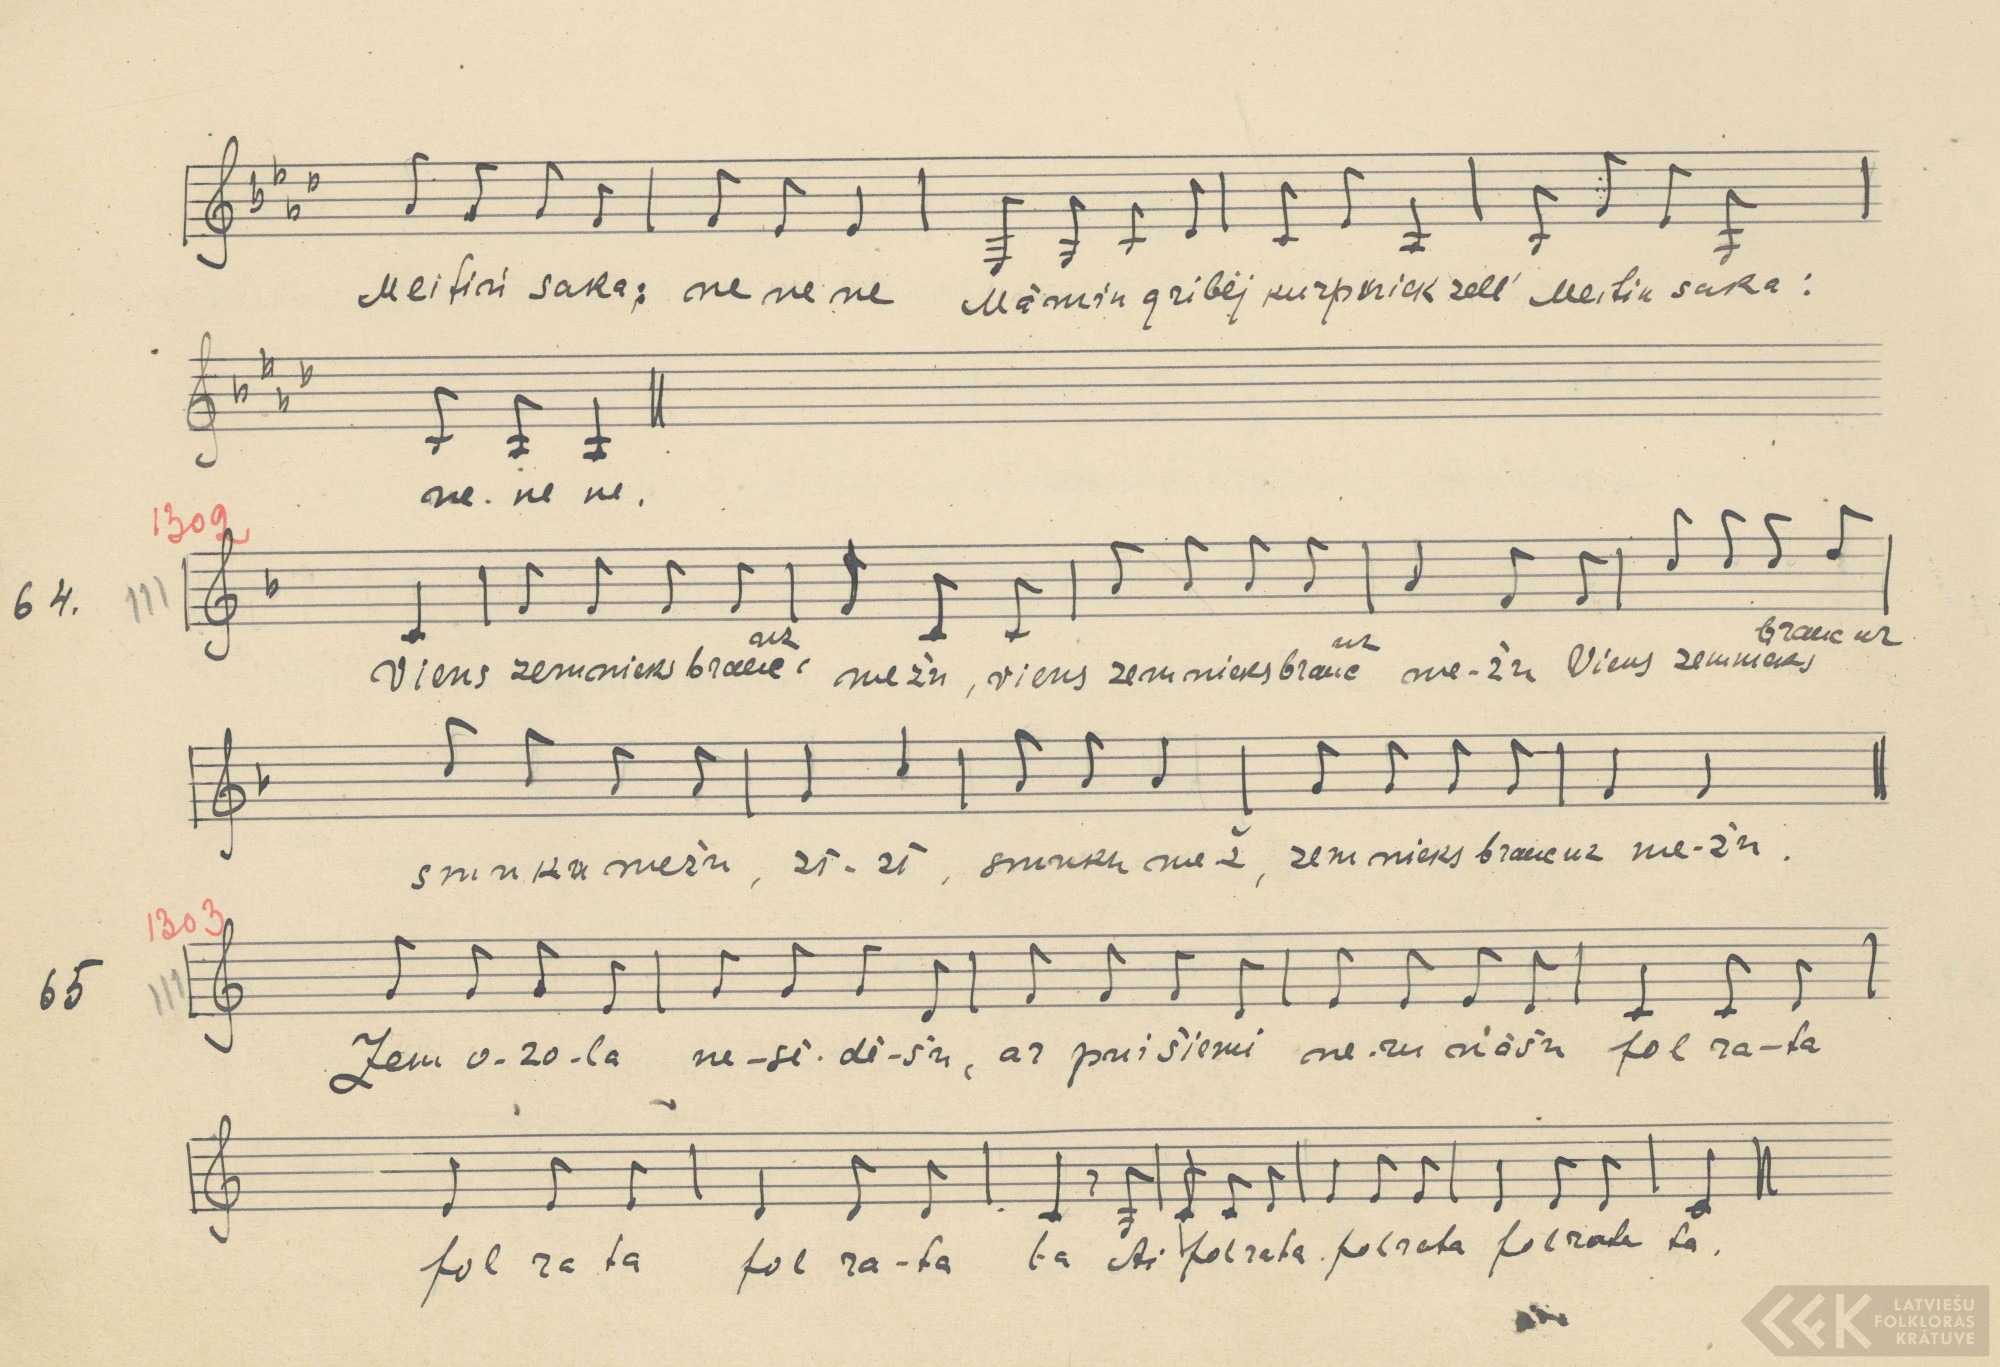 Meitiņ saka; ne ne ne Māmiņ gribēj kurpniek zell' Meitiņ saka:
ne. ne ne.
1302
64.
uz uz brauc uz
Viens zemnieks brauc mežu, viens zemnieks brauc me-žu Viens zemnieks
smuku mežu, zī-zī, smuku mež, zemnieks brauc uz me-žu.
1303
65
Zem o-zo-la ne-sē-dē-šu, ar puišiemi ne-ru nāšu fol ra-ta
fol ra ta fol ra-ta ta Ai folrata folrata folrata ta.
LATVIEŠU
FOLKLORAS
KRĀTUVE